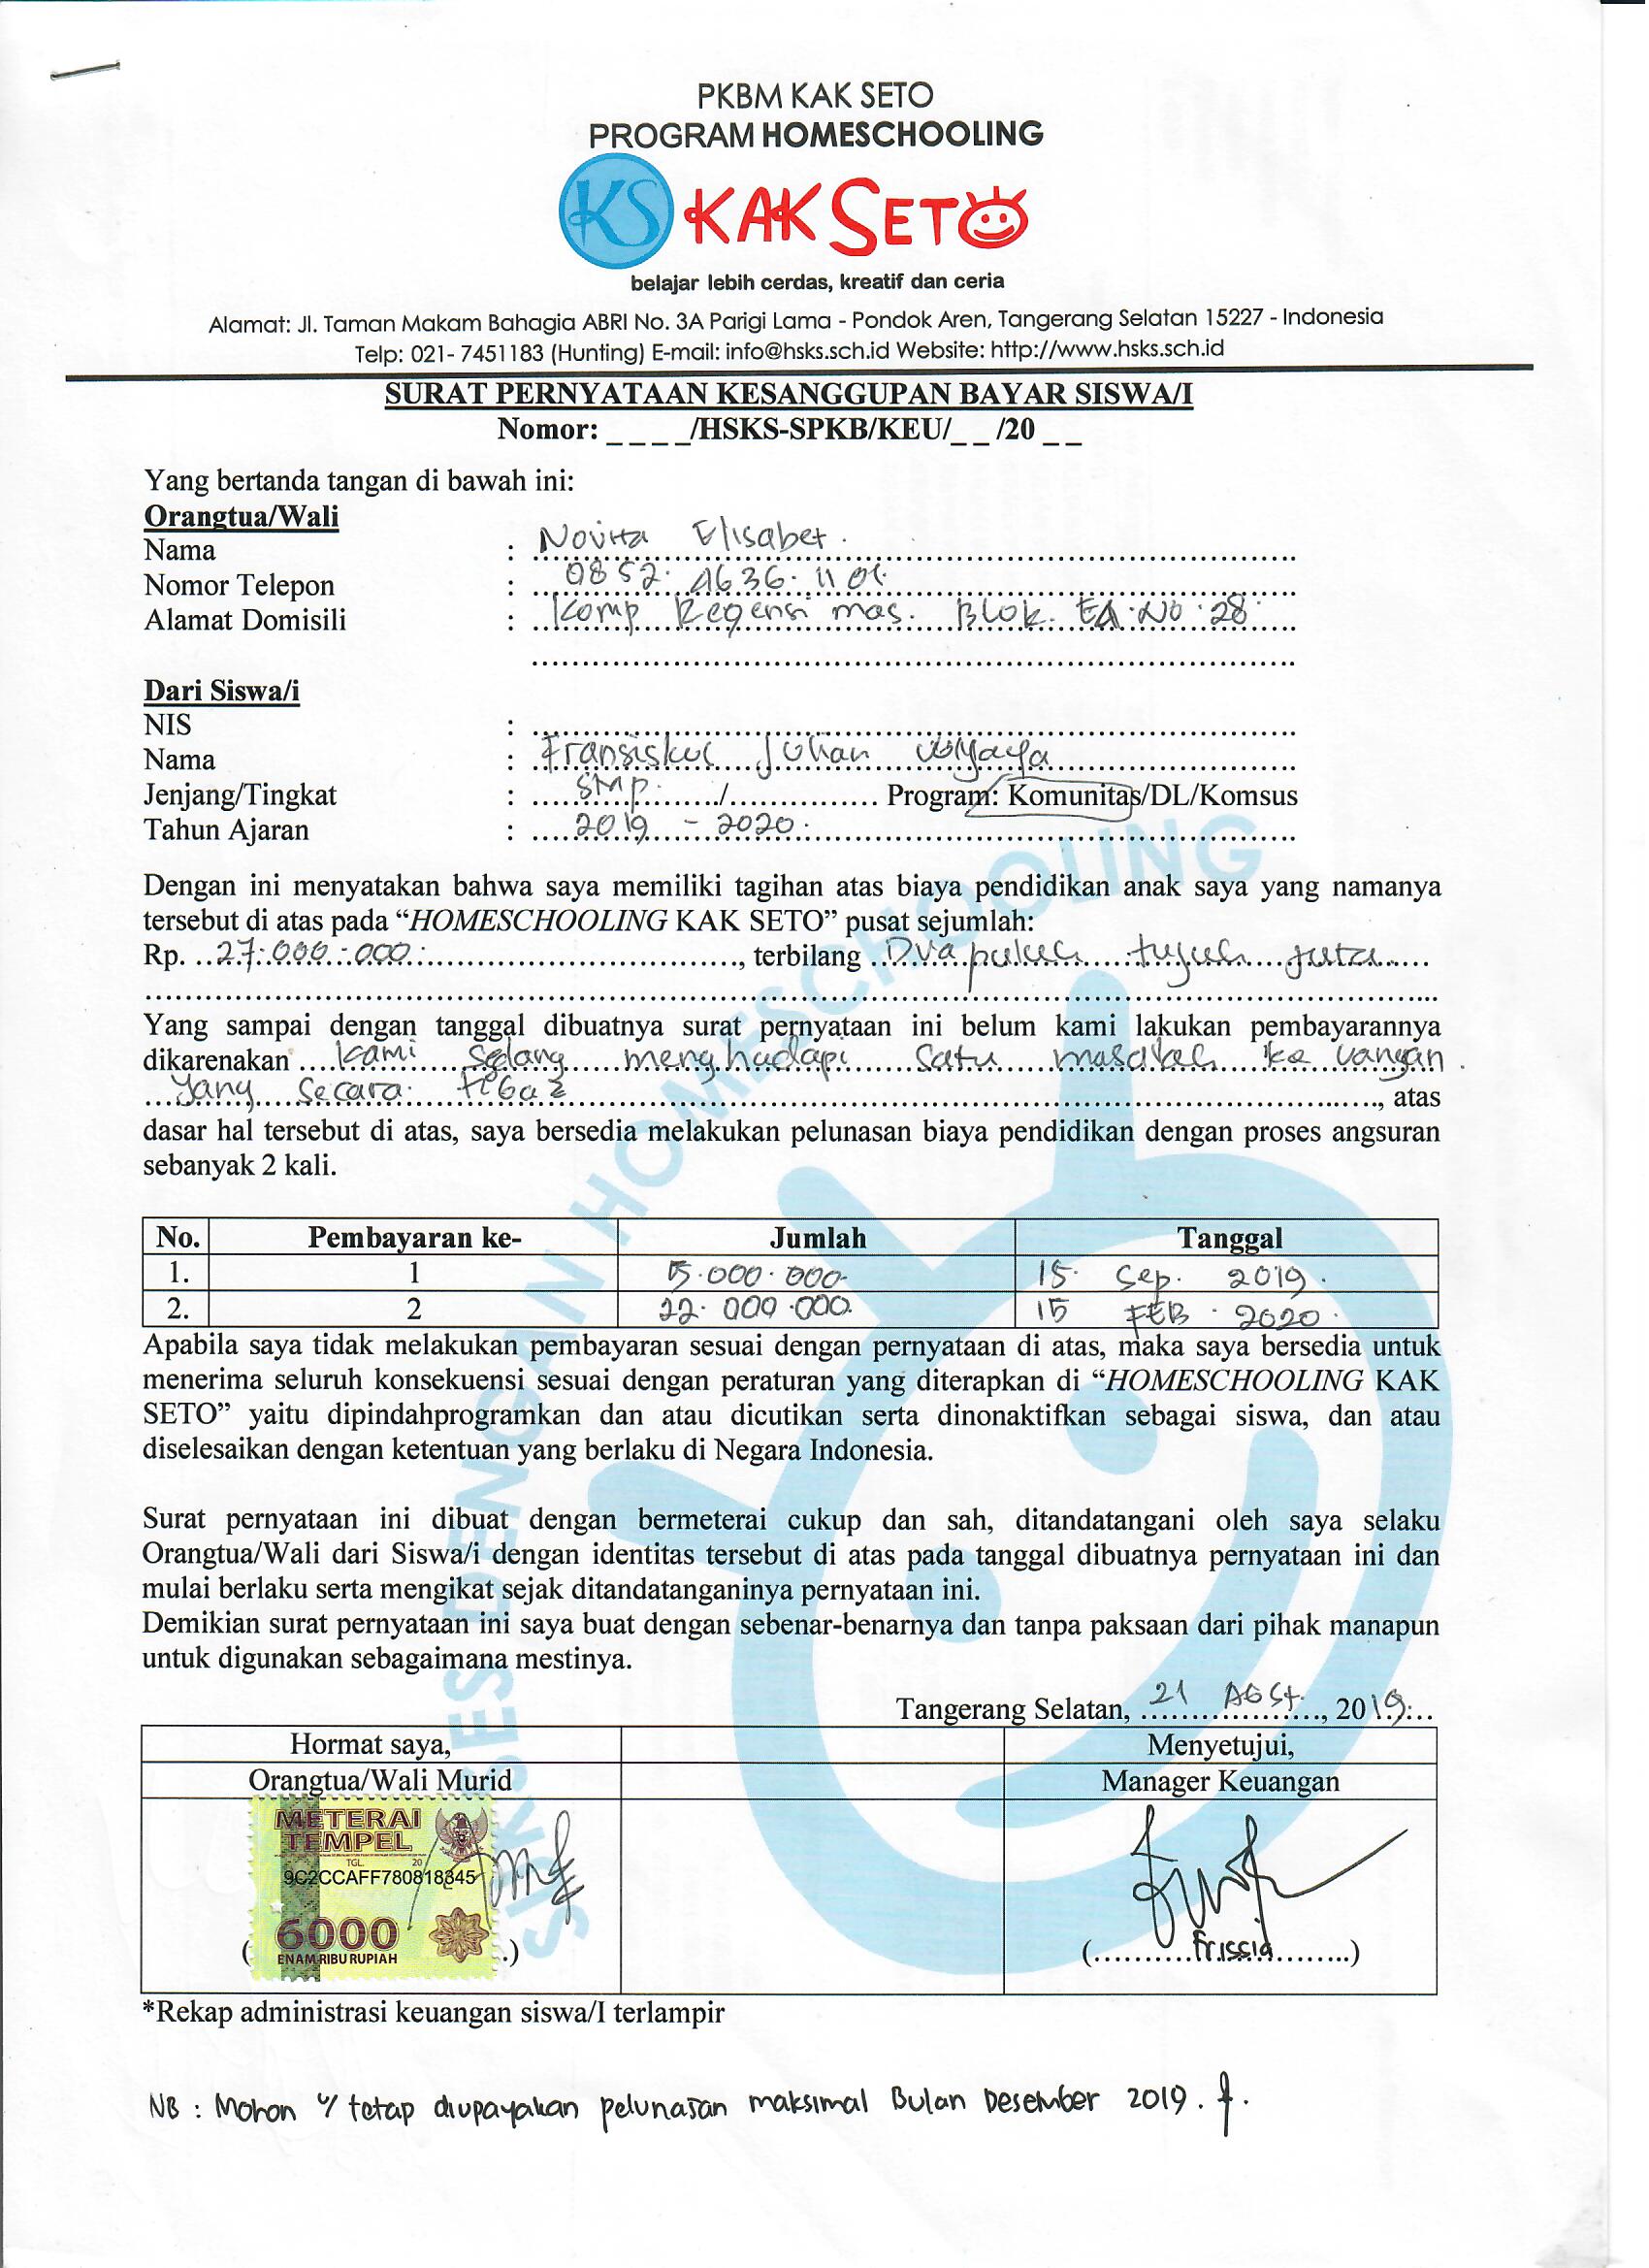 PKBM KAK SETO
PROGRAM HOMESCHOOLING
KS KAK SETO
belajar lebih cerdas, kreatif dan ceria
Alamat: Jl. Taman Makam Bahagia ABRI No. 3A Parigi Lama - Pondok Aren, Tangerang Selatan 15227 - Indonesia
Telp: 021- 7451183 (Hunting) E-mail: info@hsks.sch.id Website: http://www.hsks.sch.id
SURAT PERNYATAAN KESANGGUPAN BAYAR SISWA/I
Nomor: _ _ _ _/HSKS-SPKB/KEU/_ _ /20 _ _
Yang bertanda tangan di bawah ini:
Orangtua/Wali
Nama : Novita Elisabet.
Nomor Telepon : 0852.
Alamat Domisili : Komp Regensi mas. Blok. EA. No. 28.
Dari Siswa/i
NIS :
Nama : Fransiskus Julian Wijaya
Jenjang/Tingkat : SMP. / Program: Komunitas/DL/Komsus
Tahun Ajaran : 2019 - 2020.
Dengan ini menyatakan bahwa saya memiliki tagihan atas biaya pendidikan anak saya yang namanya
tersebut di atas pada “HOMESCHOOLING KAK SETO” pusat sejumlah:
Rp. 27.000.000, terbilang Dua puluh tujuh juta
Yang sampai dengan tanggal dibuatnya surat pernyataan ini belum kami lakukan pembayarannya
dikarenakan kami sedang menghadapi satu masalah ke uangan.
yang secara, atas
dasar hal tersebut di atas, saya bersedia melakukan pelunasan biaya pendidikan dengan proses angsuran
sebanyak 2 kali.
No. Pembayaran ke- Jumlah Tanggal
1. 1 5.000.000 15. Sep. 2019.
2. 2 22.000.000. 15 FEB. 2020.
Apabila saya tidak melakukan pembayaran sesuai dengan pernyataan di atas, maka saya bersedia untuk
menerima seluruh konsekuensi sesuai dengan peraturan yang diterapkan di “HOMESCHOOLING KAK
SETO” yaitu dipindahprogramkan dan atau dicutikan serta dinonaktifkan sebagai siswa, dan atau
diselesaikan dengan ketentuan yang berlaku di Negara Indonesia.
Surat pernyataan ini dibuat dengan bermeterai cukup dan sah, ditandatangani oleh saya selaku
Orangtua/Wali dari Siswa/i dengan identitas tersebut di atas pada tanggal dibuatnya pernyataan ini dan
mulai berlaku serta mengikat sejak ditandatanganinya pernyataan ini.
Demikian surat pernyataan ini saya buat dengan sebenar-benarnya dan tanpa paksaan dari pihak manapun
untuk digunakan sebagaimana mestinya.
Tangerang Selatan, 21 Agst., 2019
Hormat saya, Menyetujui,
Orangtua/Wali Murid Manager Keuangan
METERAI
TEMPEL
TGL. 20
9C2CCAFF780818845
6000
ENAM RIBU RUPIAH
(Frissia)
*Rekap administrasi keuangan siswa/I terlampir
NB : Mohon u/ tetap diupayakan pelunasan maksimal Bulan Desember 2019.
SUKSES DENGAN HOMESCHOOLING